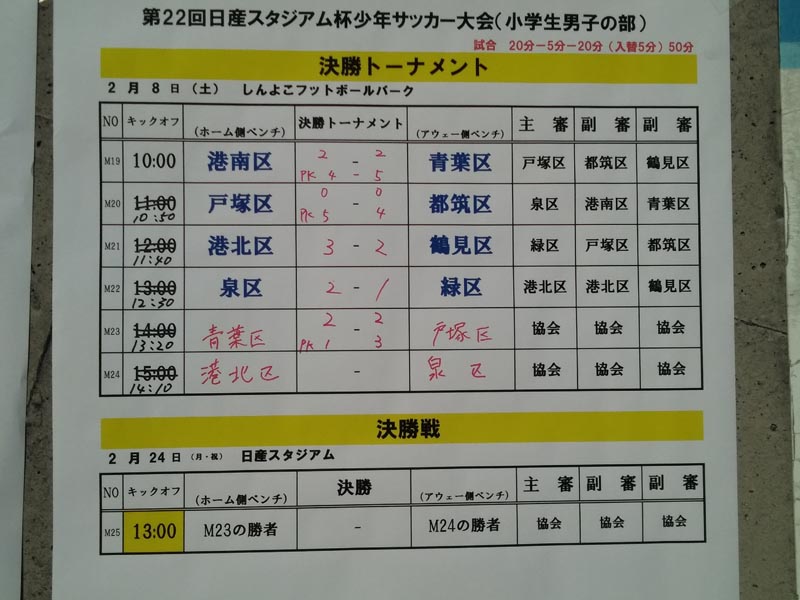 第22回日産スタジアム杯少年サッカー大会(小学生男子の部)
試合 20分－5分－20分(入替5分)50分
決勝トーナメント
2 月 8 日 (土) しんよこフットボールパーク
NO キックオフ (ホーム側ベンチ) 決勝トーナメント (アウェー側ベンチ) 主 審 副 審 副 審
M19 10:00 港南区 2 - 2 PK 4 - 5 青葉区 戸塚区 都筑区 鶴見区
M20 11:00 10:50 戸塚区 0 - 0 PK 5 4 都筑区 泉区 港南区 青葉区
M21 12:00 11:40 港北区 3 - 2 鶴見区 緑区 戸塚区 都筑区
M22 13:00 12:30 泉区 2 - 1 緑区 港北区 港北区 鶴見区
M23 14:00 13:20 青葉区 2 - 2 PK 1 3 戸塚区 協会 協会 協会
M24 15:00 14:10 港北区 - 泉区 協会 協会 協会
決勝戦
2 月 24 日 (月・祝) 日産スタジアム
NO キックオフ (ホーム側ベンチ) 決勝 (アウェー側ベンチ) 主 審 副 審 副 審
M25 13:00 M23の勝者 - M24の勝者 協会 協会 協会